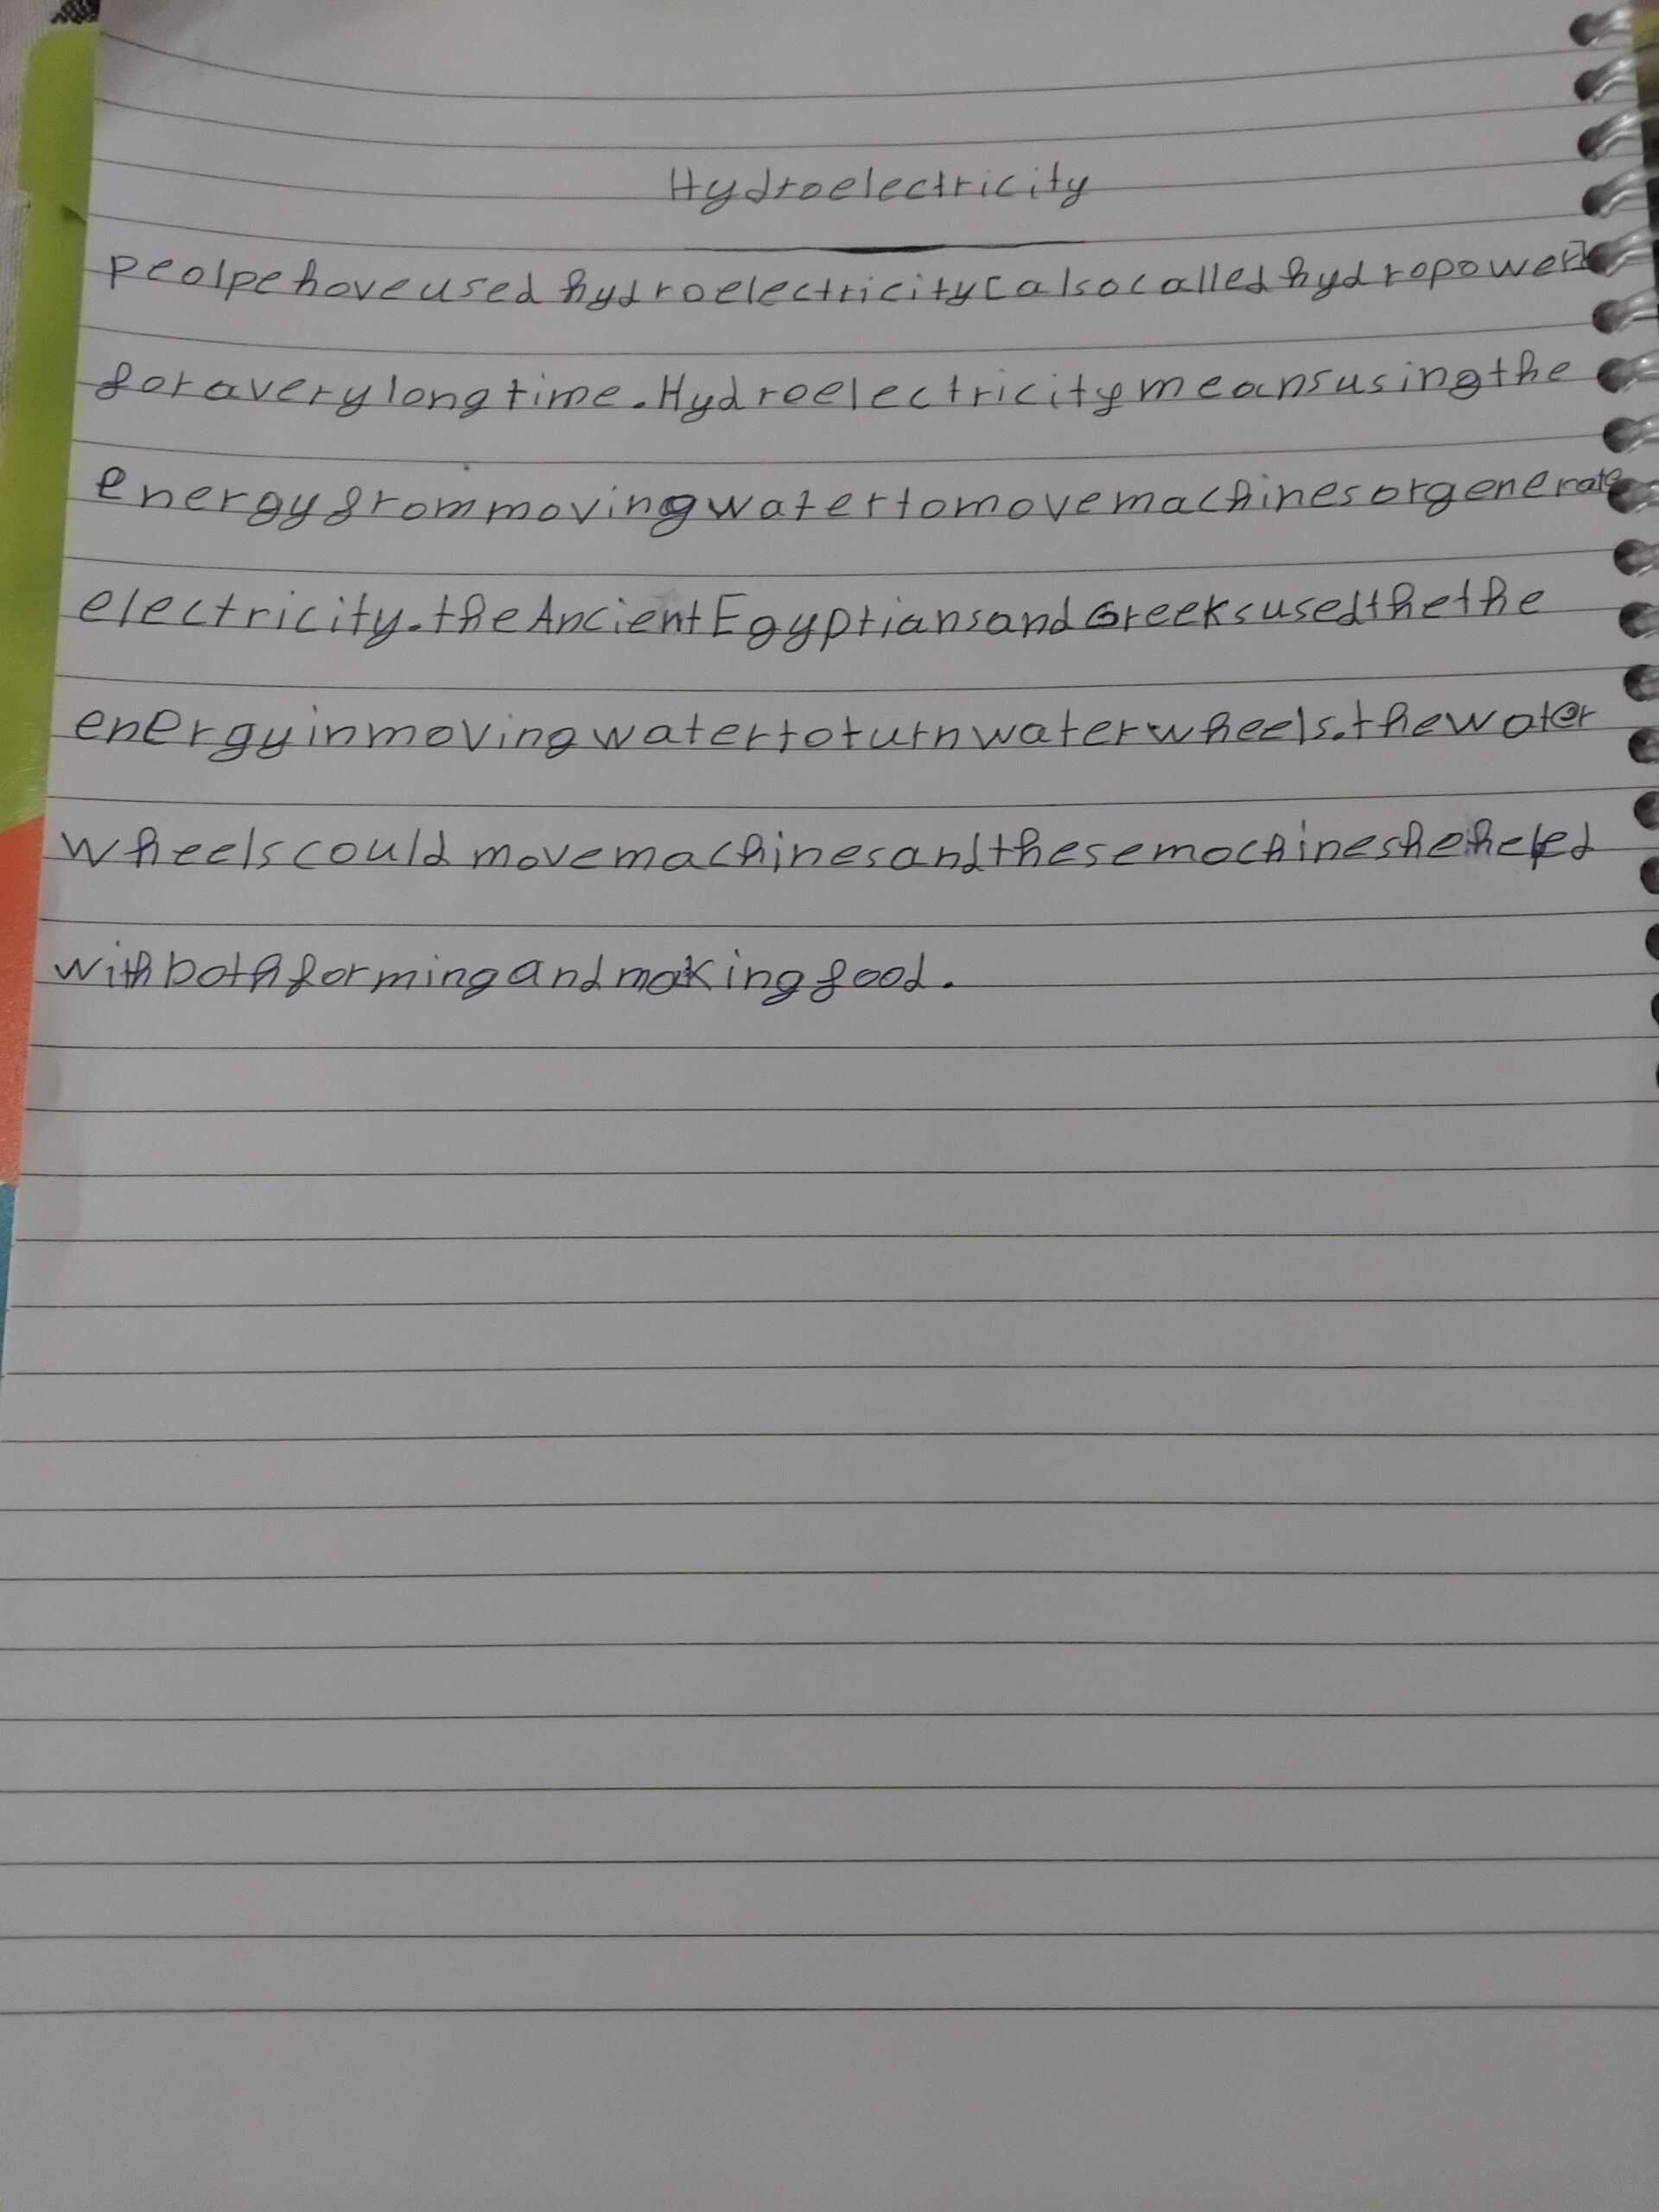 Hydroelectricity
peolpe have used hydroelectricity [also called hydropower]
for a very long time. Hydroelectricity means using the
energy from moving water to move machines or generate
electricity. the Ancient Egyptians and Greeks used the the
energy in moving water to turn water wheels. the water
wheels could move machines and these machines he helped
with both farming and making food.